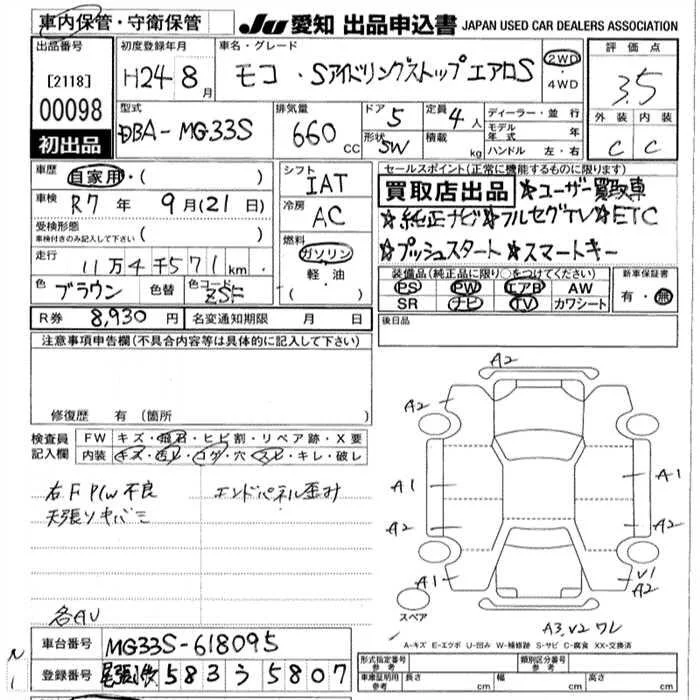 車内保管・守衛保管
JU 愛知 出品申込書 JAPAN USED CAR DEALERS ASSOCIATION
出品番号
[2118]
00098
初出品
初度登録年月
H24-8月
車名・グレード
モコ・SアイドリングストップエアロS
2WD
・
4WD
評価点
3.5
外装 内装
C C
型式
DBA-MG33S
排気量
660cc
ドア 5
形状 SW
定員 4人
積載 kg
ディーラー・並行
モデル年式 年
ハンドル 左・右
車歴 自家用・( )
車検 R7年 9月(21日)
受検形態
車検付きのみ記入して下さい ( )
走行 11万4千571km
色 ブラウン 色替 色コード ZSF
シフト
IAT
冷房
AC
燃料
ガソリン
軽・油
( )
セールスポイント(正常に機能するものに限ります)
買取店出品 ☆ユーザー買取車
☆純正ナビ☆フルセグTV☆ETC
☆プッシュスタート☆スマートキー
装備品(純正品に限り○をつけてください)
PS PW エアB AW
SR ナビ TV カワシート
新車保証書
有・無
R券 8,930円 名変通知期限 月 日
後日品
注意事項申告欄(不具合内容等は具体的に記入して下さい)
修復歴 有(箇所 )
検査員記入欄
FW キズ・飛石・ヒビ割・リペア跡・X要
内装 キズ・汚レ・コゲ・穴・スレ・キレ・破レ
右F P/W不良 エンドパネル歪み
天張ソキバミ
各AU
A2
A2
A2
A1
A1
A2
A2
A1
V1
A2
スペア
A3,V2 ワレ
A-キズ E-エクボ U-凹み W-補修跡 S-サビ C-腐食 XX-交換済
車台番号 MG33S-618095
登録番号 尾張小牧 583 う 5807
形式指定番号
参考
類別区分番号
参考
車庫証明用
参考
長さ cm 幅 cm 高さ cm